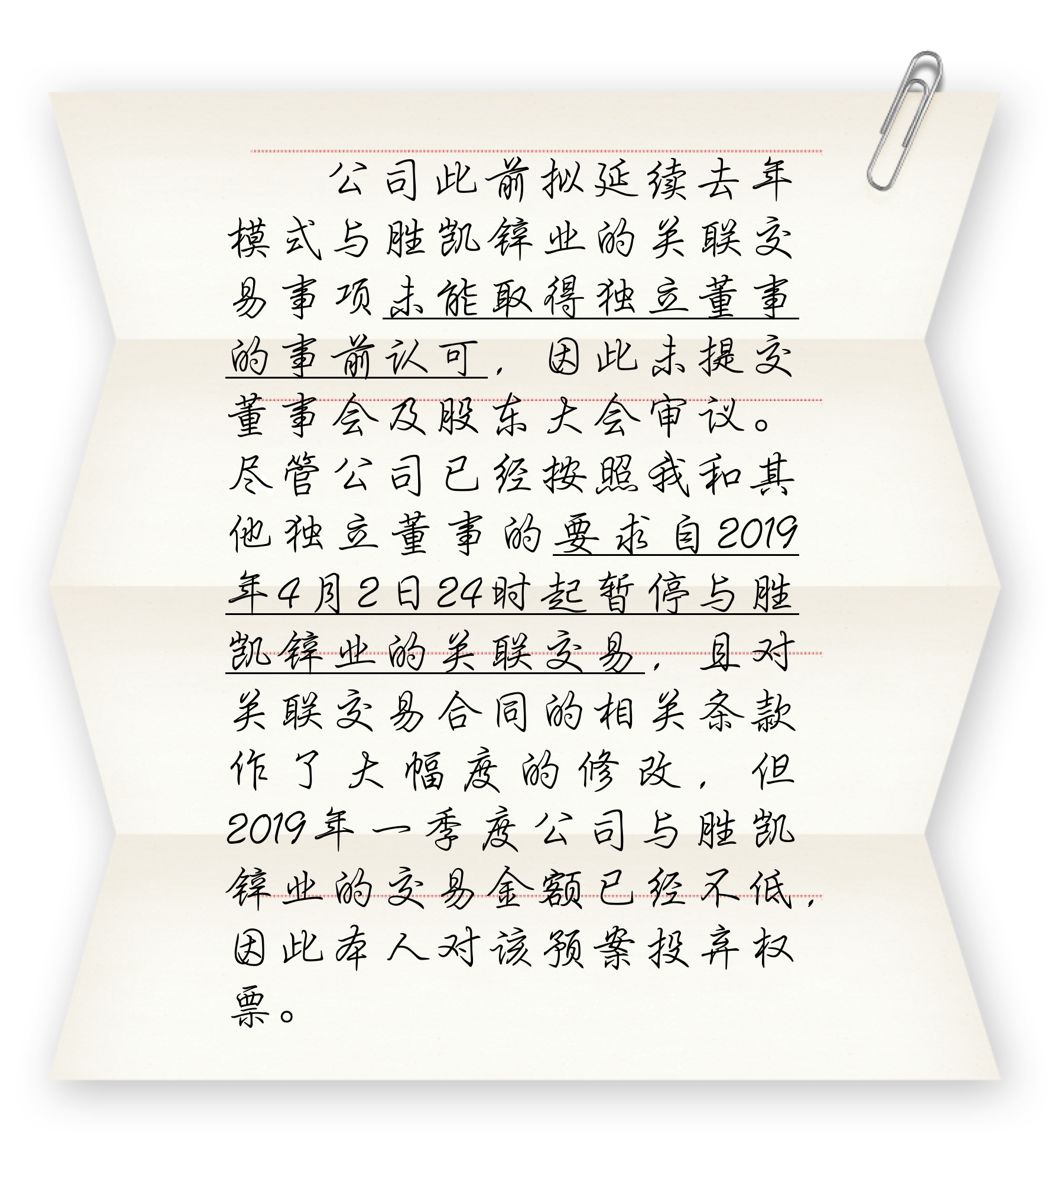 公司此前拟延续去年
模式与胜凯锌业的关联交
易事项未能取得独立董事
的事前认可，因此未提交
董事会及股东大会审议。
尽管公司已经按照我和其
他独立董事的要求自2019
年4月2日24时起暂停与胜
凯锌业的关联交易，且对
关联交易合同的相关条款
作了大幅度的修改，但
2019年一季度公司与胜凯
锌业的交易金额已经不低，
因此本人对该预案投弃权
票。